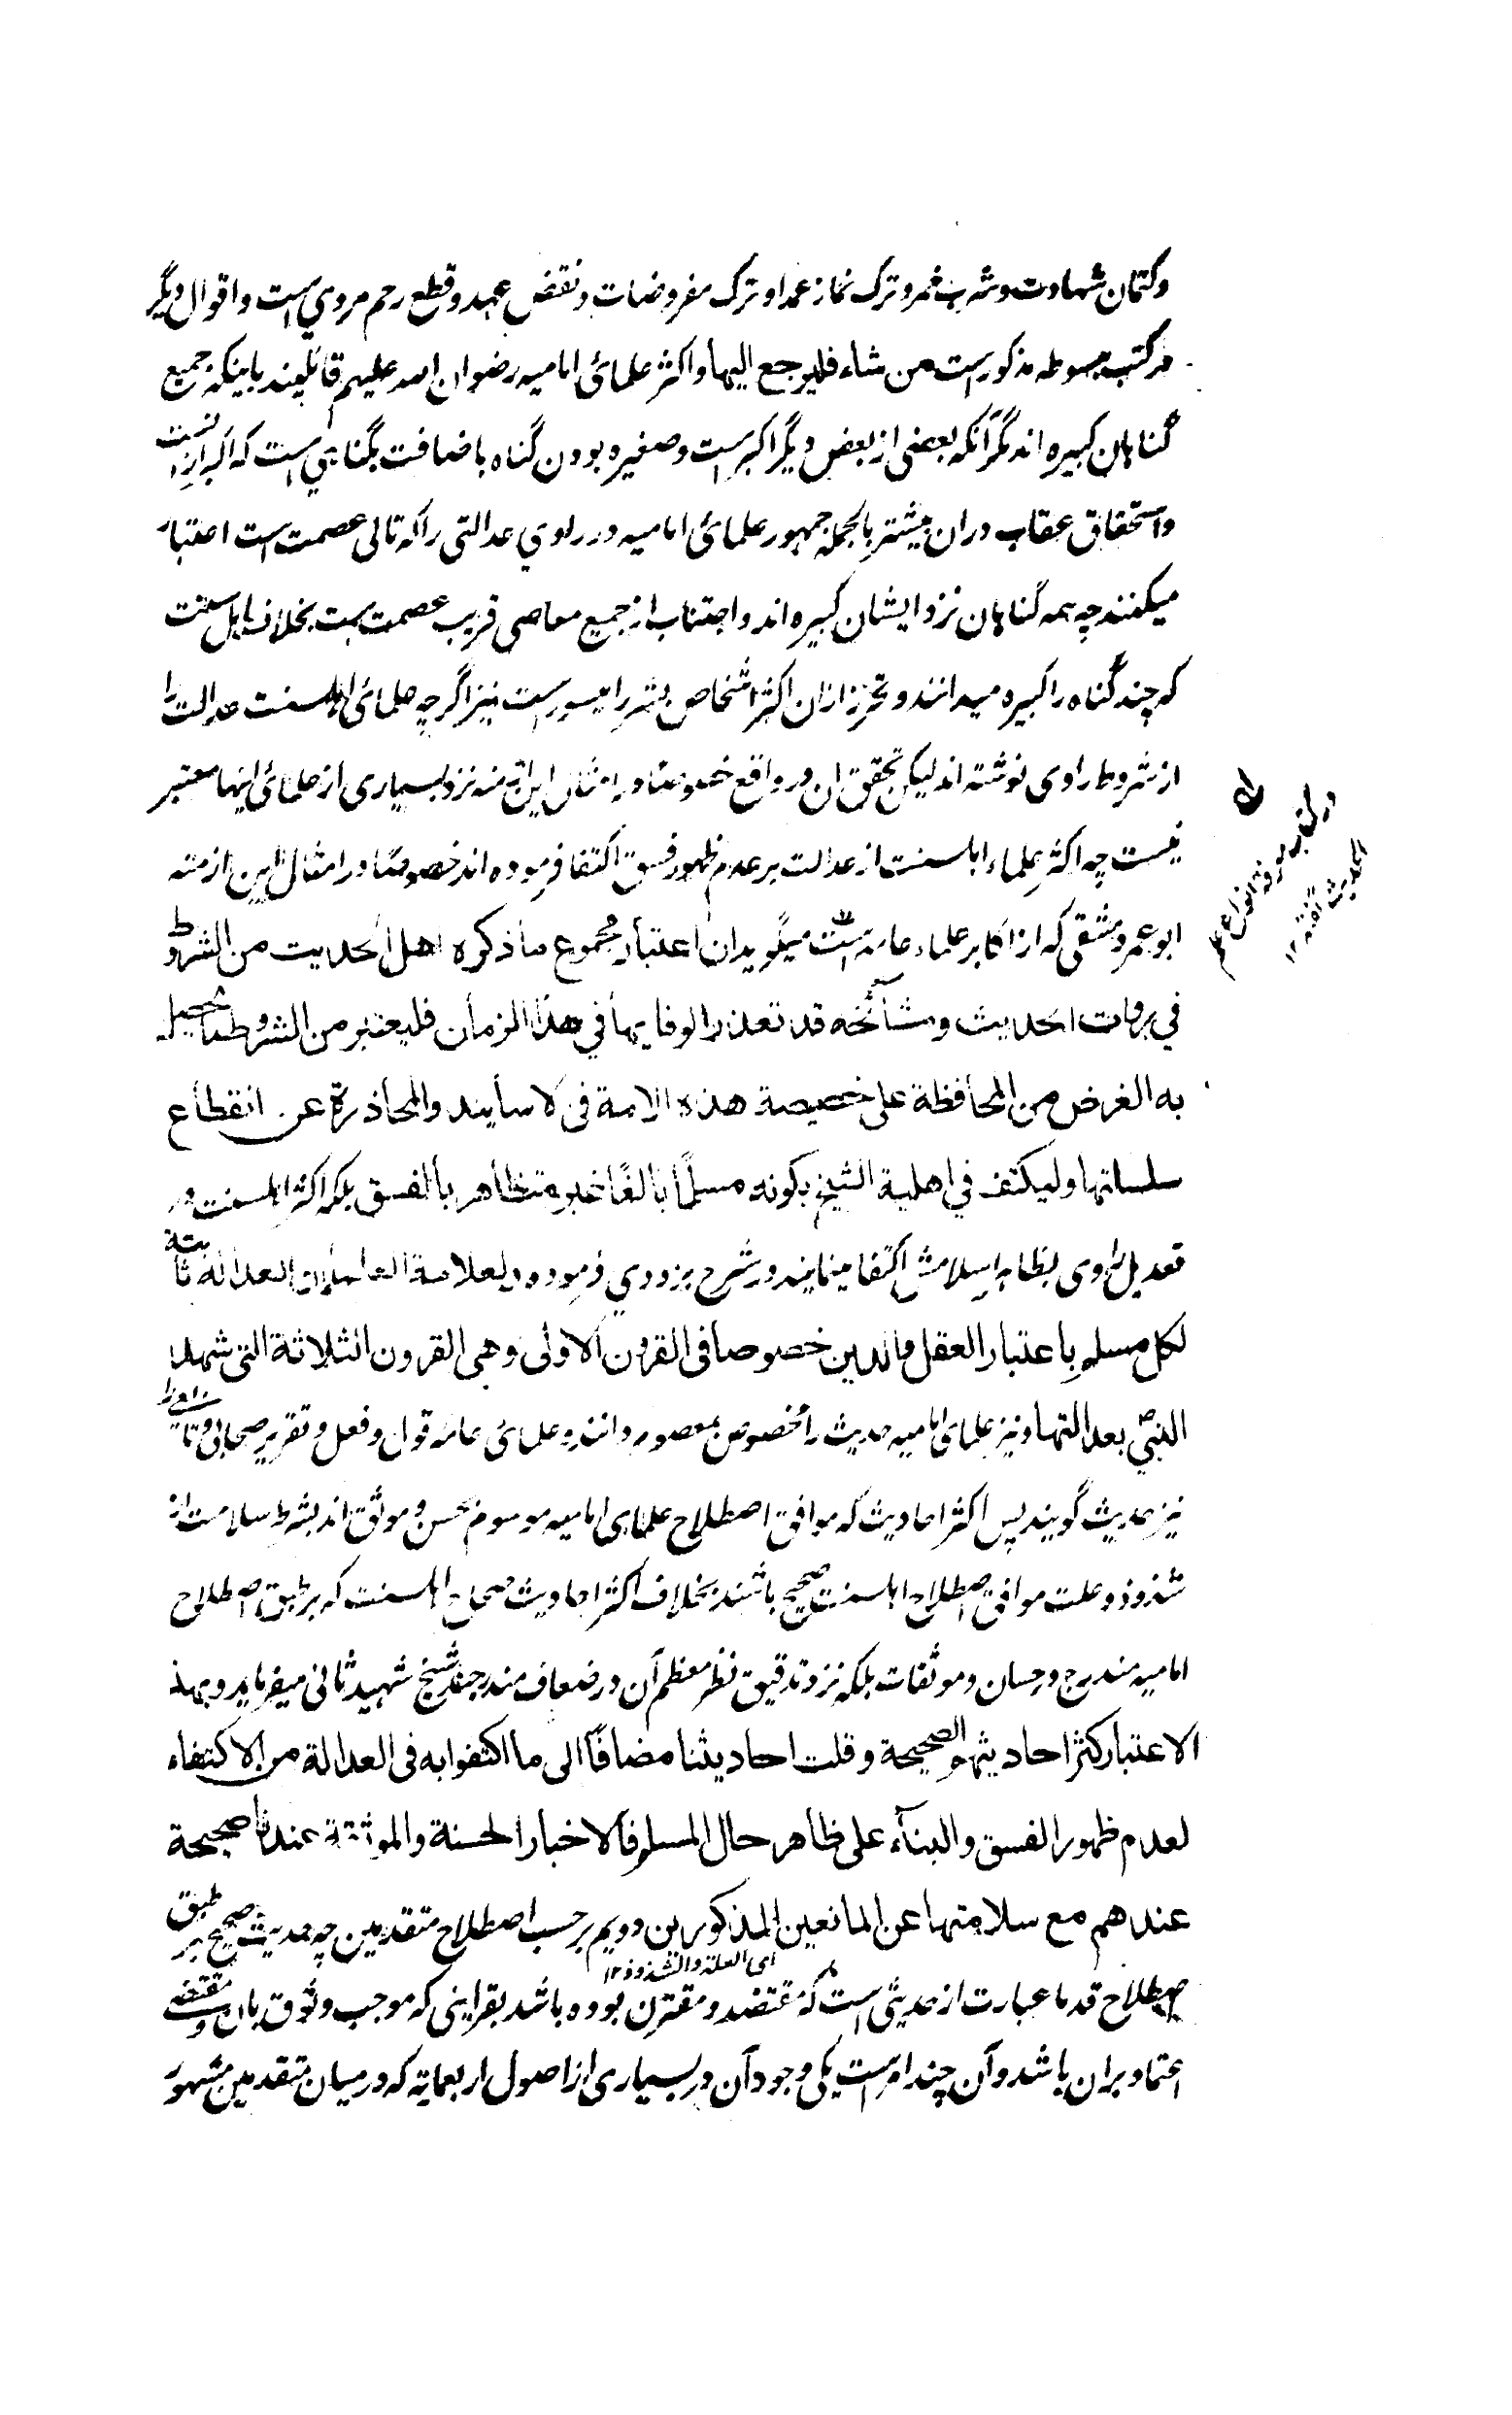 وکتمان شهادت و شرب خمر و ترک نماز عمدا و ترک مفروضات و نقض عهد و قطع رحم مروي است و اقوال دیگر
در کتب مبسوطه مذکور است من شاء فلیرجع الیها و اکثر علمائ امامیه رضوان الله علیهم قائلیند باینکه جمیع
گناهان کبیره اند مگر آنکه بعضی از بعض دیگر اکبر است و صغیره بودن گناه باضافت بگناهي است که اکبر ازانست
و استحقاق عقاب دران بیشتر بالجمله جمهور علمائ امامیه در راوي عدالتی را که تالی عصمت است اعتبار
میکنند چه همه گناهان نزد ایشان کبیره اند و اجتناب از جمیع معاصی قریب عصمت ست بخلاف اهل سنت
که چند گناه را کبیره میدانند و تحرز ازان اکثر اشخاص بشر را میسور است نیز اگر چه علمائ اهلسنت عدالت را
از شروط راوی نوشته اند لیکن تحقق ان در واقع خصوصا در امثال این ازمنه نزد بسیاری از علمائ اینها معتبر
نیست چه اکثر علماء اهلسنت از عدالت بر عدم ظهور فسق اکتفا فرموده اند خصوصًا در امثال این ازمنه
ابو عمرو دمشقی که از اکابر علماء عامه است میگوید ان اعتبار مجموع ما ذکره اهل الحدیث من الشروط
في روات الحدیث و مشائخه قد تعذر الوفا بها في هذا الزمان فلیعتبر من الشروط ما یحصل
به الغرض من المحافظة علی خصیصة هذه الامة فی الاسانید والمحاذرة عن انقطاع
سلسلتها ولیکتف في اهلیة الشیخ بکونه مسلمًا بالغًا غیر متظاهر بالفسق بلکه اکثر اهلسنت در
تعدیل راوی بظاهر اسلامش اکتفا مینمایند در شرح بزدوي فرموده العدالة ثابتة
لکل مسلم باعتبار العقل والدین خصوصا فی القرون الاولی وهی القرون الثلاثة التی شهد
النبيّ بعدالتها و نیز علمای امامیه حدیث را مخصوص بمعصوم دانند و علمای عامه قول و فعل و تقریر صحابی و تابعی را
نیز حدیث گویند پس اکثر احادیث که موافق اصطلاح علمای امامیه موسوم بحسن و موثق اند بشرط سلامت از
شذوذ و علت موافق اصطلاح اهلسنت صحیح باشند بخلاف اکثر احادیث صحاح اهلسنت که بر طبق اصطلاح
امامیه مندرج در حسان و موثقات بلکه نزد تدقیق نظر معظم آن در ضعاف مندرجند شیخ شهید ثانی میفرماید و بهذا
الاعتبار کثر احادیثهم الصحیحة و قلت احادیثنا مضافًا الی ما اکتفوا به فی العدالة من الاکتفاء
لعدم ظهور الفسق والبناء علی ظاهر حال المسلم فالاخبار الحسنة والموثقة عندنا صحیحة
عندهم مع سلامتها عن المانعین المذکورین دویم بر حسب اصطلاح متقدمین چه حدیث صحیح بر طبق
ای العلة والشذوذ ۱۲
اصطلاح قدما عبارت از حدیثی است که معتضد و مقترن بوده باشد بقراینی که موجب وثوق بان و مقتضی
اعتماد بران باشد و آن چند امر است یکی وجود آن در بسیاری از اصول اربعمایه که در میان متقدمین مشهور
در کتاب معرفة انواع
الحدیث ۱۲